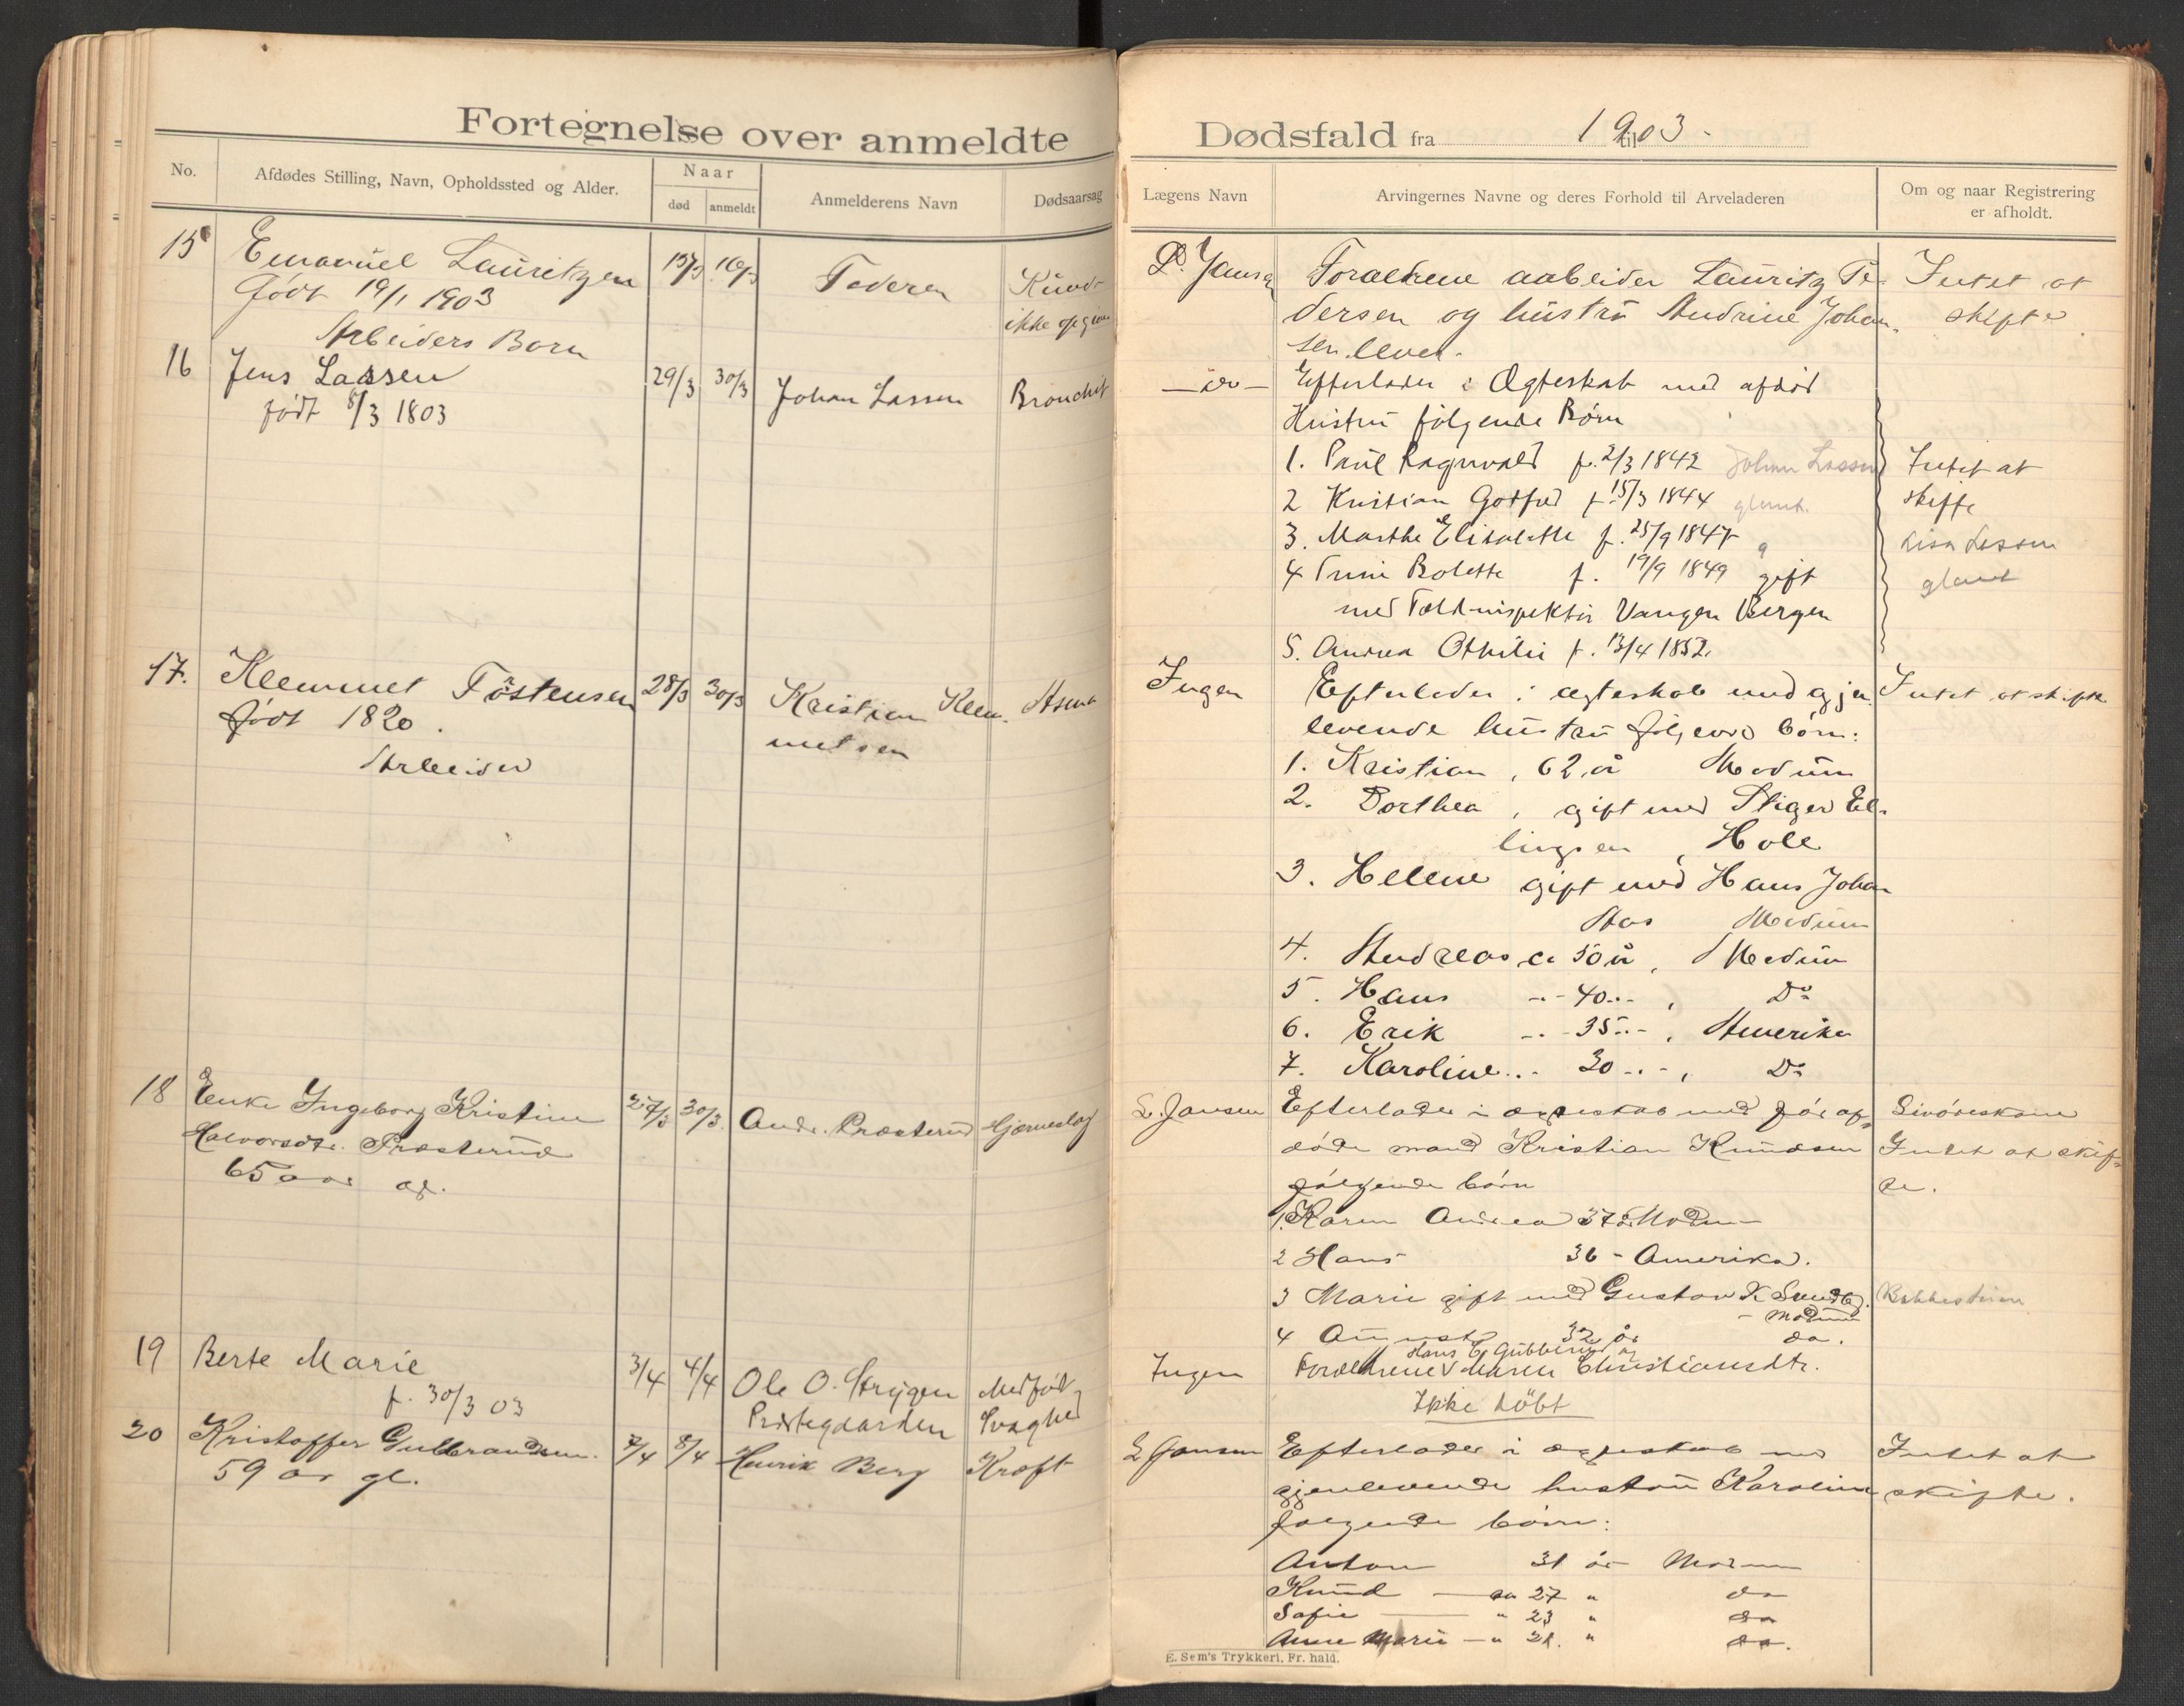 Fortegnelse over anmeldte
No.
Afdødes Stilling, Navn, Opholdssted og Alder.
Naar
død
anmeldt
Anmelderens Navn
Dødsaarsag
15
Emanuel Lauritzen
født 19/1 1903
Arbeiders Barn
15/3
16/3
Faderen
ikke
16
Jens Lassen
født 8/3 1803
29/3
30/3
Johan Lassen
Bronchit
17.
Klemmet Töstensen
født 1820.
Arbeider
28/3
30/3
Kristian Klem-
metsen
Asma
18
Enke Ingeborg Kristine
Halvorsdtr. Præsterud
65 aar
27/3
30/3
Andr. Præsterud
Hjerneslag
19
Berte Marie
f. 30/3 03
3/4
4/4
Ole O. Strygen
Prestegaarden
Medfødt
Svaghed
20
Kristoffer Gulbrandsen.
59 år gl.
7/4
8/4
Henrik Berg
Kræft
Dødsfald fra 1903. til
Lægens Navn
Arvingernes Navne og deres Forhold til Arveladeren
Om og naar Registrering
er afholdt.
D. Jansen
Forældrene arbeider Lauritz Pe-
dersen og hustru Andrine Johan-
sen lever.
Intet at
skifte
— do —
Efterlader i Ægteskab med afdød
Hustru følgende Børn
1. Paul Ragnvald f. 2/3 1842 Johan Lassen
2 Kristian Gotfred f. 15/3 1844 glemt.
3. Marthe Elisabette f. 25/9 1847 g
4 Trine Bolette f. 19/9 1849 gift
med Toldinspektør Vangen Bergen
5. Andrea Othilie f. 13/4 1852.
Intet at
skifte
Lisa Lassen
glemt
Ingen
Efterlader i ægteskab med gjen-
levende hustru følgende børn:
1. Kristian, 62 år Modum
2. Dorthea, gift med Stiger El-
lingsen, Hole
3. Helene gift med Hans Johan
Aas Modum
4. Andreas ca 50 år, Modum
5. Hans -..- 40 -..-, Do
6. Erik -..- 35 -..-, Amerika
7. Karoline -..- 30 -..-, Do
Intet at skifte
L. Jansen
Efterlader i ægteskab med før af-
døde mand Kristian Knudsen
følgende børn
1. Karen Andrea 37 år Modum
2 Hans 36 - Amerika.
3 Marie gift med Gustav K
- Modum
4 August 32 år do.
Intet at skif-
te.
Ingen
Hans E. Gubberud og
Forældrene Maren Christiansdtr.
Ikke døbt
L Jansen
Efterlader i ægteskab med
gjenlevende hustru Karoline
følgende børn:
Anton 31 år Modum
Knud — ca 27 " do
Sofie — " 23 " do
Anne Marie — " 21. " do.
Intet at
skifte.
E. Sem's Trykkeri, Fr. hald.